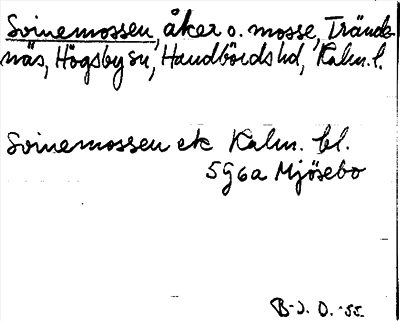 Svinemossen, åker o. mosse, Trände-
näs, Högsby sn, Handbörds hd, Kalm. l.
Svinemossen ek Kalm. bl.
5G6a Mjösebo
B-J. O. -55